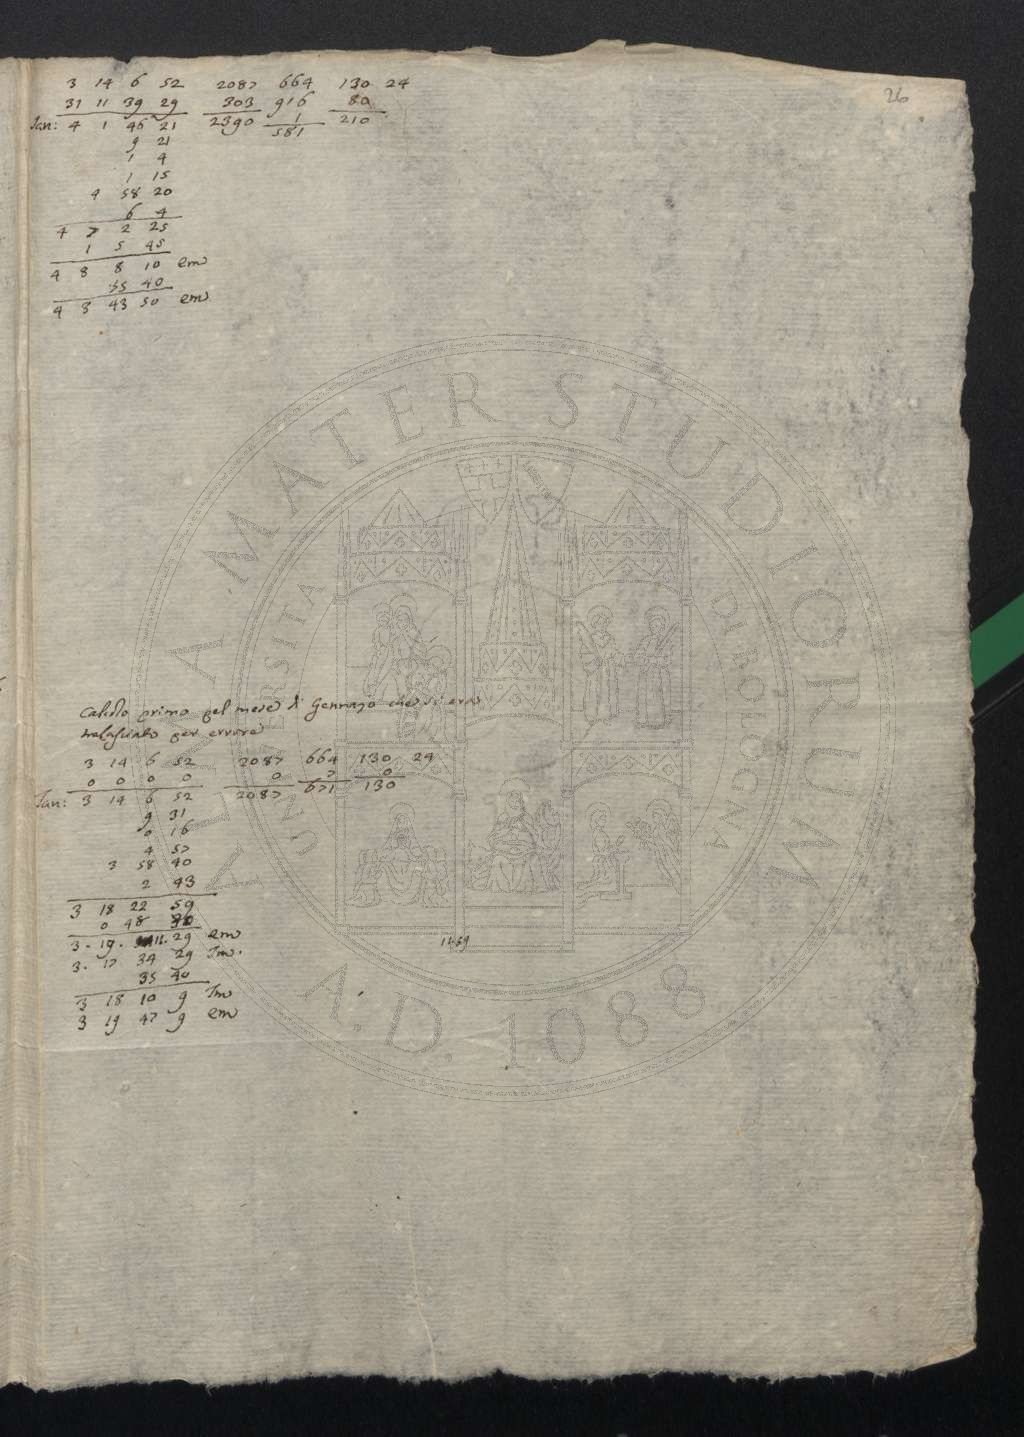 26
3 14 6 52 2087 664 130 24
31 11 39 29 303 916 80
Jan: 4 1 46 21 2390 1 210
9 21 581
1 4
1 15
4 58 20
6 4
4 7 2 25
1 5 45
4 8 8 10 em
35 40
4 8 43 50 em
Calcolo primo del mese di Gennaro che si era
tralasciato per errore
3 14 6 52 2087 664 130 24
0 0 0 0 0 7 0
Jan: 3 14 6 52 2087 671 130
9 31
0 16
4 57
3 58 40
2 43
3 18 22 59
0 48 30
3. 19. 11. 29 em
3. 17 34 29 Im.
35 40
3 18 10 9 Im
3 19 47 9 em
ALMA MATER STUDIORUM
UNIVERSITA DI BOLOGNA
A.D. 1088